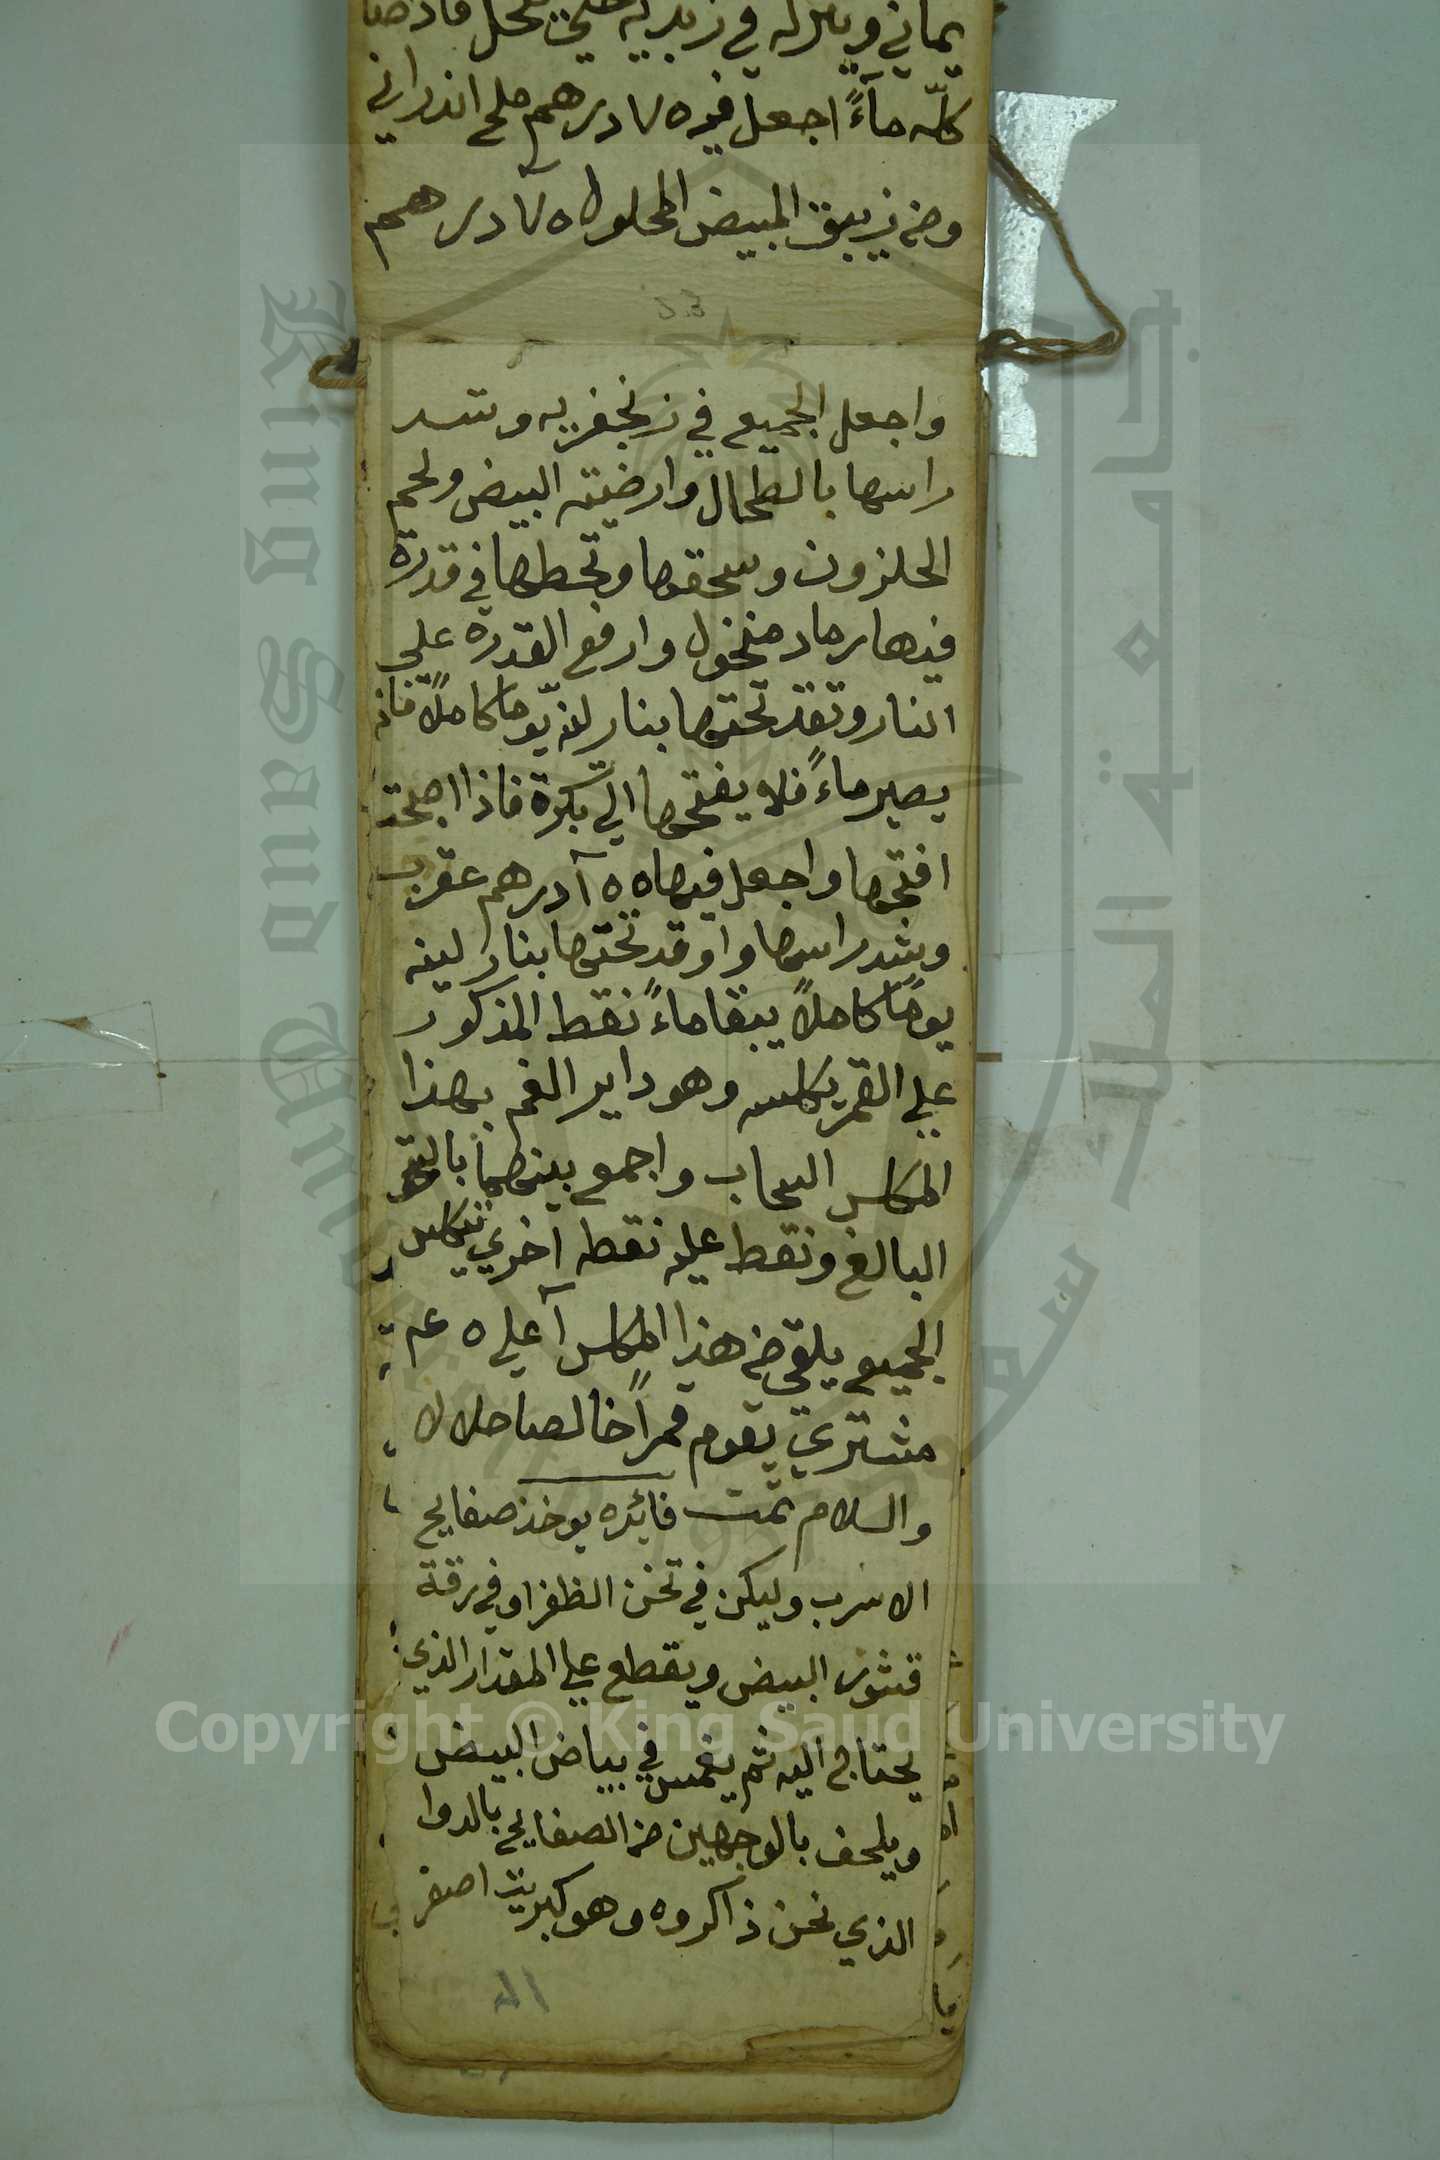 يماني وينزله في زبديه حتي ينحل فاذا صار
كلّه مآءً اجعل فيه ٧ درهم ملح اندراني
ومن زيبق المبيض المحلول ٥ ٧ درهم
واجعل الجميع في زنجفريه وتسد
راسها بالطحال وارضيته البيض ولحم
الحلزون وسحقها وتحطها في قدرة
فيها رماد منخول وارفع القدره علي
النار وتقد تحتها بنار لينه يوما كاملاً فانه
يصير ماءً فلا يفتحها الي بكرة فاذا اصبحت
افتحها واجعل فيها ٥٥ ا درهم عقرب
وشد راسها واوقد تحتها بنار لينه
يومًا كاملاً يبقا ماءً نقط المذكور
علي القمر يكلسه وهو داير الفم بهذا
المكلس السحاب واجمع بينهما بالسحق
البالغ ونقط عليه نقطه اخري تتكلس
الجميع يلقي من هذا المكلس ا علي ٥ عم
مشتري يقوم قمراً خالصا حلالا
والسلام تمت فائده يوخذ صفايح
الاسرب وليكن في تخن الظفر او في رقة
قشور البيض ويقطع علي المقدار الذي
يحتاج اليه ثم يغمس في بياض البيض
ويلحف بالوجهين من الصفايح بالدوا
الذي نحن ذاكروه وهو كبريت اصفر
Copyright © King Saud University
King Saud University
جامعة الملك سعود
1957